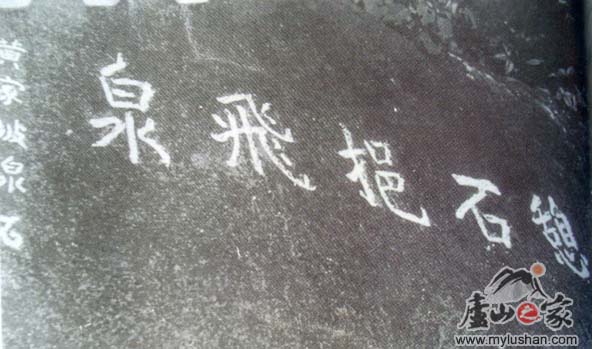 憩石挹飛泉
黄家坡泉石
廬山之家
www.mylushan.com